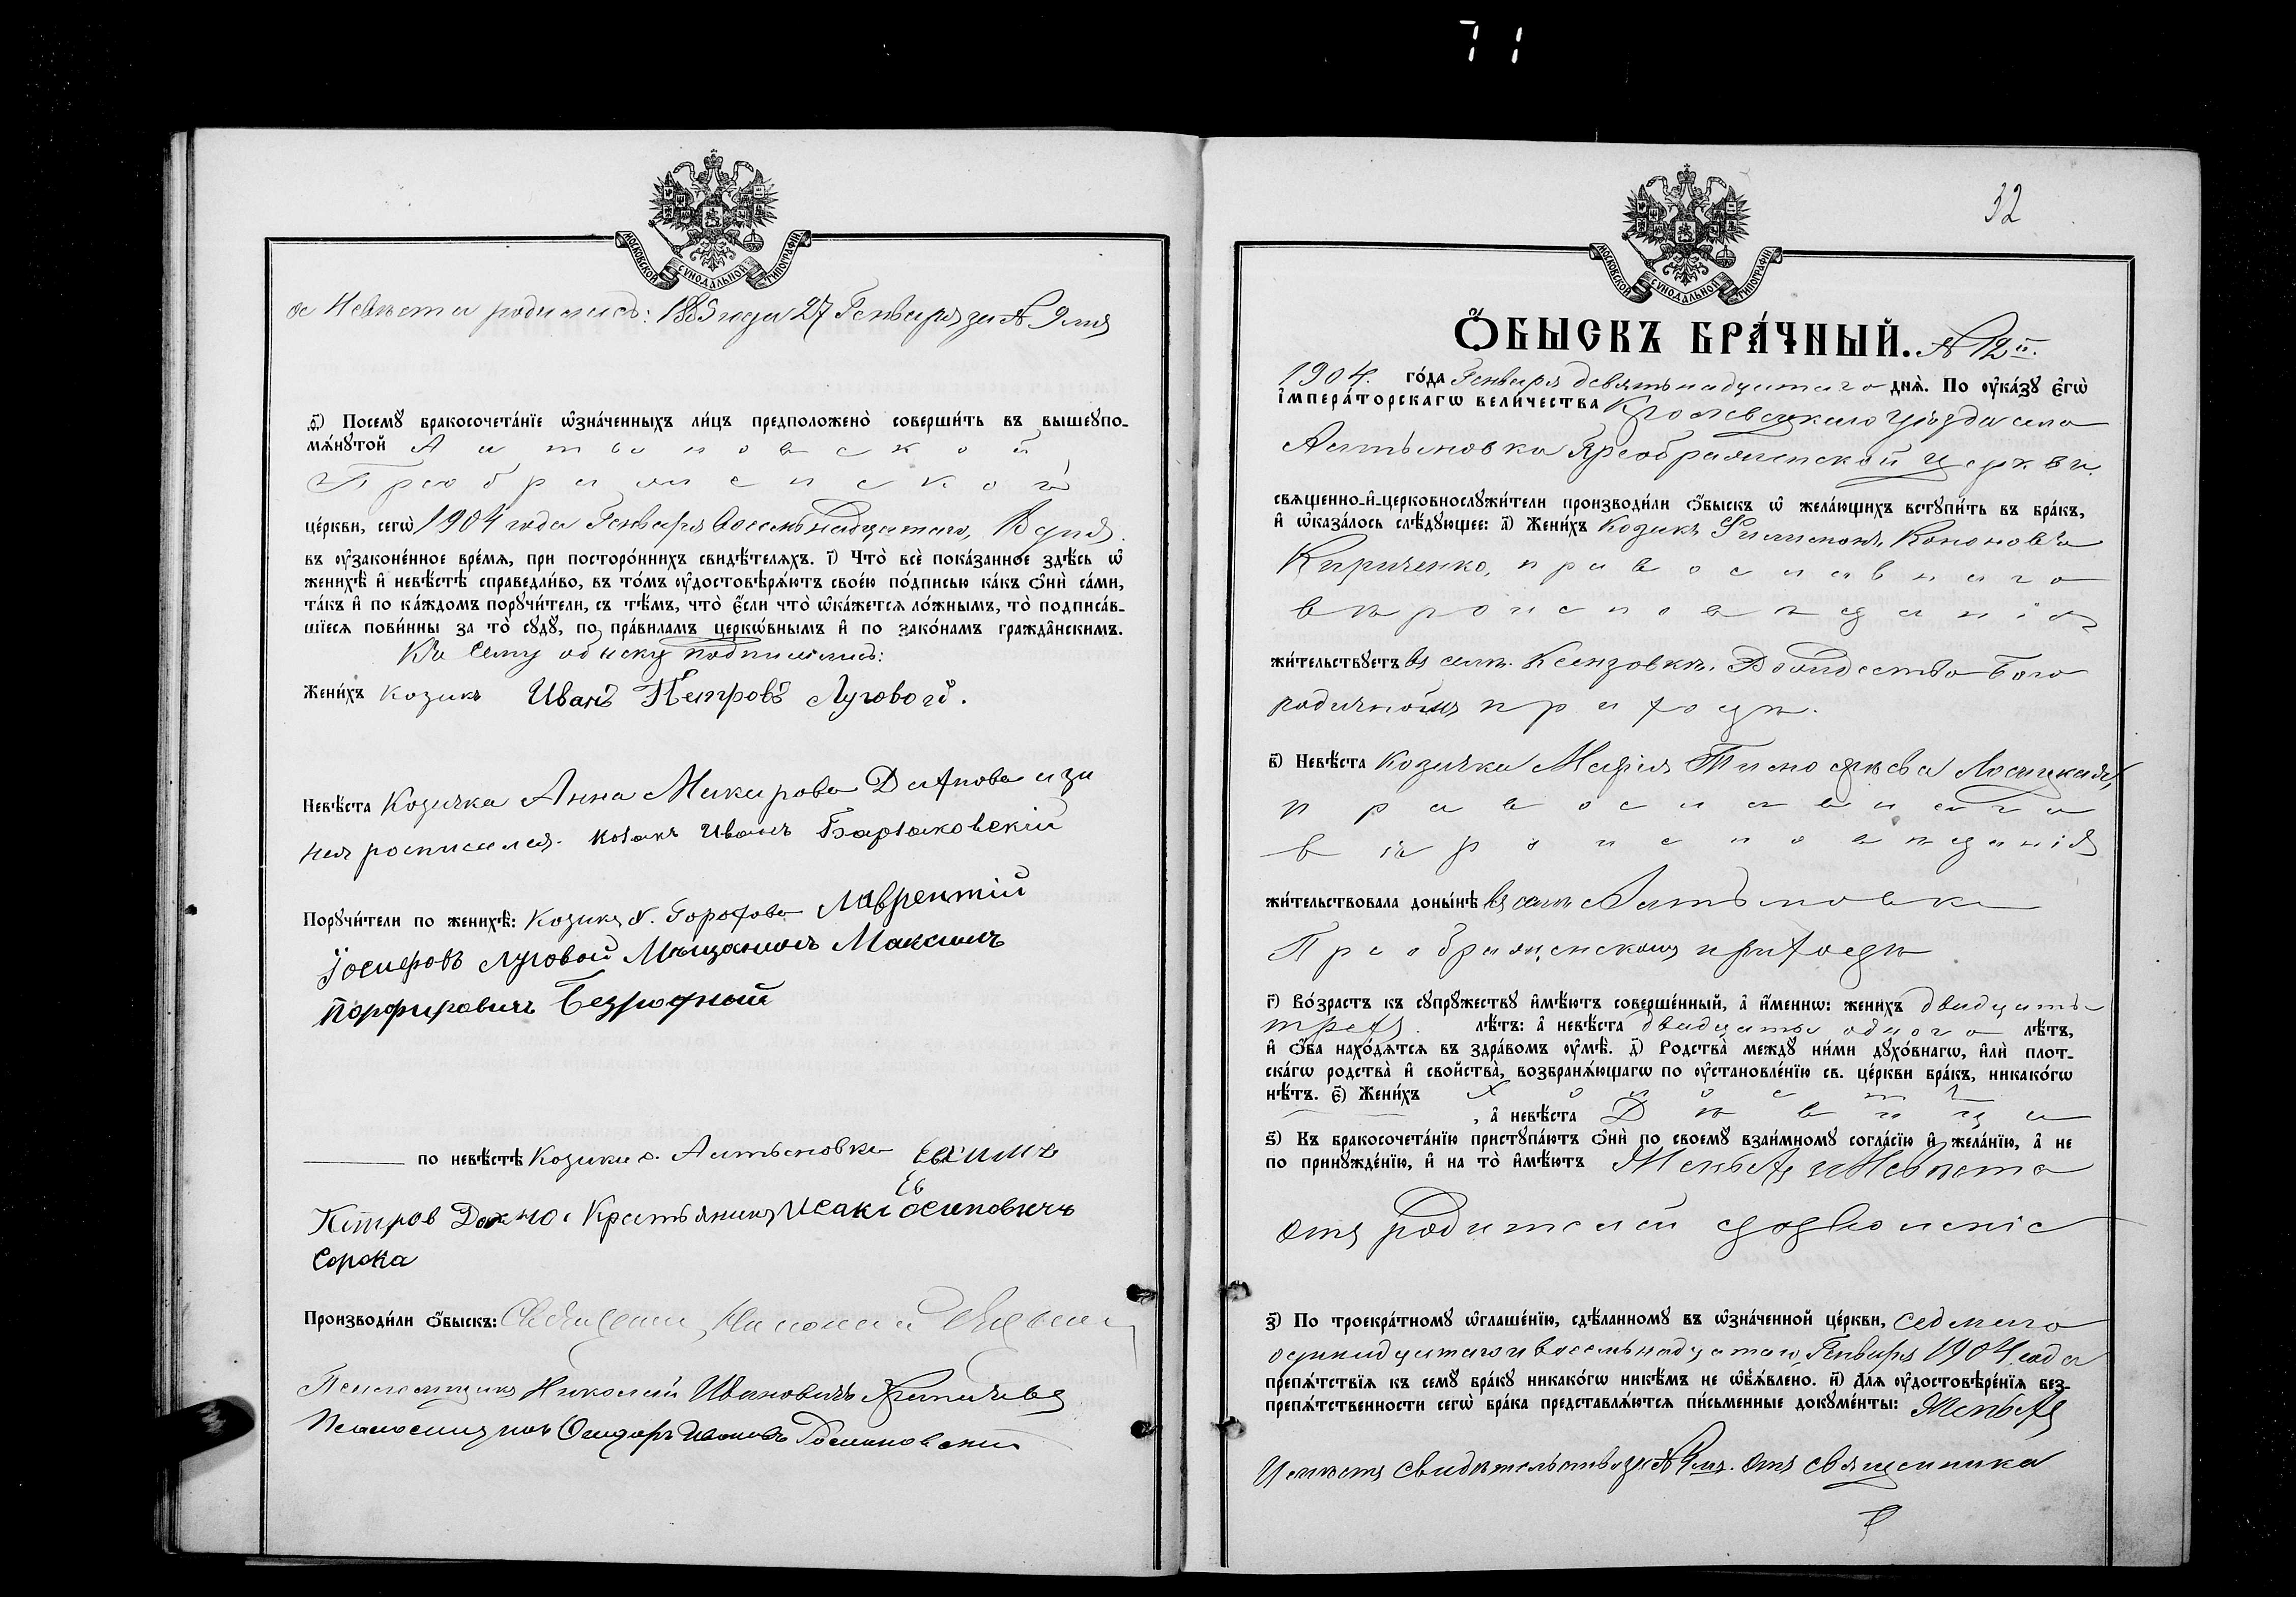 71
МОСКОВСКОЙ СУНОДАЛЬНОЙ ТИПОГРАФІИ
а Невѣста родилась: 1885 года 27 Генваря за № 9 мъ
ѳ҃) Посемꙋ бракосочета́нїе ѡзна́ченныхъ ли́цъ предположено̀ соверши́ть въ вышеꙋпо-
мѧ́нꙋтой Алтыновской
Преображенской
це́ркви, сегѡ̀ 1904 года Генваря восемьнадцатаго, дня
въ ᲂу҆законе́нное вре́мѧ, при посторо́ннихъ свидѣ́телѧхъ. і҃) Что̀ всѐ пока́занное здѣ́сь ѡ҆
женихѣ̀ и҆ невѣ́стѣ справедли́во, въ то́мъ ᲂу҆достовѣрѧ́ютъ свое́ю по́дписью ка́къ ѻ҆нѝ са́ми,
та́къ и҆ по ка́ждомъ порꙋчи́тели, съ тѣ́мъ, что̀ є҆́сли что̀ ѡ҆ка́жетсѧ ло́жнымъ, то̀ подписа́в-
шїесѧ пови́нны за то̀ сꙋдꙋ̀, по пра́виламъ церкѡ́внымъ и҆ по зако́намъ гражда̑нскимъ.
Къ сему обыску подписались:
Жени́хъ козакъ Иванъ Петровъ Луговой.
Невѣ́ста Козачка Анна Макарова Дахнова а за
нея росписался козакъ Иванъ
Порꙋчи́тели по женихѣ̀: Козакъ с. Горохова Лаврентій
Іосифовъ Луговой Мѣщанинъ Максимъ
Порфировичъ Безродный
по невѣ́стѣ Козаки с. Алтыновки Ефимъ
Петров Дахно Крестьянинъ Исакъ Осиповичъ
Сорока
Производи́ли ѻ҆́быскъ: Священникъ Николай
Псаломщикъ Николай Ивановичъ
Псаломщикъ
32
МОСКОВСКОЙ СУНОДАЛЬНОЙ ТИПОГРАФІИ
Ѻ҆́БЫСКЪ БРА́ЧНЫЙ. № 12й.
1904. го́да Генваря девятьнадцатаго днѧ̀. По ᲂу҆ка́зꙋ є҆гѡ̀
і҆мпера́торскагѡ вели́чества Кролевецкаго уѣзда села
Алтыновка Преображенской церкви.
свѧщенно-и҆-церковнослꙋжи́тели производи́ли ѻ҆́быскъ ѡ҆ жела́ющихъ встꙋпи́ть въ бра́къ,
и҆ ѡ҆каза́лось слѣ́дꙋющее: а҃) Жени́хъ Козакъ Филимонъ Кононовъ
Кириченко, православнаго
вѣроисповѣданія
жи́тельствꙋетъ въ селѣ Ксензовкѣ, Рождество Бого
родичномъ приходѣ.
в҃) Невѣ́ста Козачка Марія Тимофѣева Лосицкая,
православнаго
вѣроисповѣданія
жи́тельствовала доны́нѣ въ селѣ Алтыновкѣ
Преображенскомъ приходѣ
г҃) Во́зрастъ къ сꙋпрꙋ́жествꙋ и҆мѣ́ютъ соверше́нный, а҆ и҆́меннѡ: жени́хъ двадцать
трехъ. лѣ́тъ: а҆ невѣ́ста двадцать одного лѣ́тъ,
и҆ ѻ҆́ба нахо́дѧтсѧ въ здра́вомъ ᲂу҆мѣ̀. д҃) Родства̀ междꙋ̀ ни́ми дꙋхо́внагѡ, и҆лѝ плот-
ска́гѡ родства̀ и҆ сво́йства̀, возбранѧ́ющагѡ по ᲂу҆становле́нїю св. це́ркви бра́къ, никако́гѡ
нѣ́тъ. є҃) Жени́хъ холостъ
, а҆ невѣ́ста Дѣвица
ѕ҃) Къ бракосочета́нїю пристꙋпа́ютъ ѻ҆нѝ по своемꙋ̀ взаи́мномꙋ согла́сїю и҆ жела́нїю, а҆ не
по принꙋжде́нїю, и҆ на то̀ и҆мѣ́ютъ Женихъ и Невѣста
отъ родителей дозволеніе
з҃) По троекра́тномꙋ ѡ҆глаше́нїю, сдѣ́ланномꙋ въ ѡ҆зна́ченной це́ркви, седмаго
одинадцатаго и восемьнадцатаго, Генваря 1904 года
препѧ́тствїѧ къ семꙋ̀ бра́кꙋ никако́гѡ никѣ́мъ не ѡ҆б̾ѧ́влено. и҃) Длѧ̀ ᲂу҆достовѣре́нїѧ без-
препѧ́тственности сегѡ̀ бра́ка представлѧ́ютсѧ пи́сьменные докꙋме́нты: Женихъ
Имѣетъ свидѣтельство за № 4мъ. отъ священника